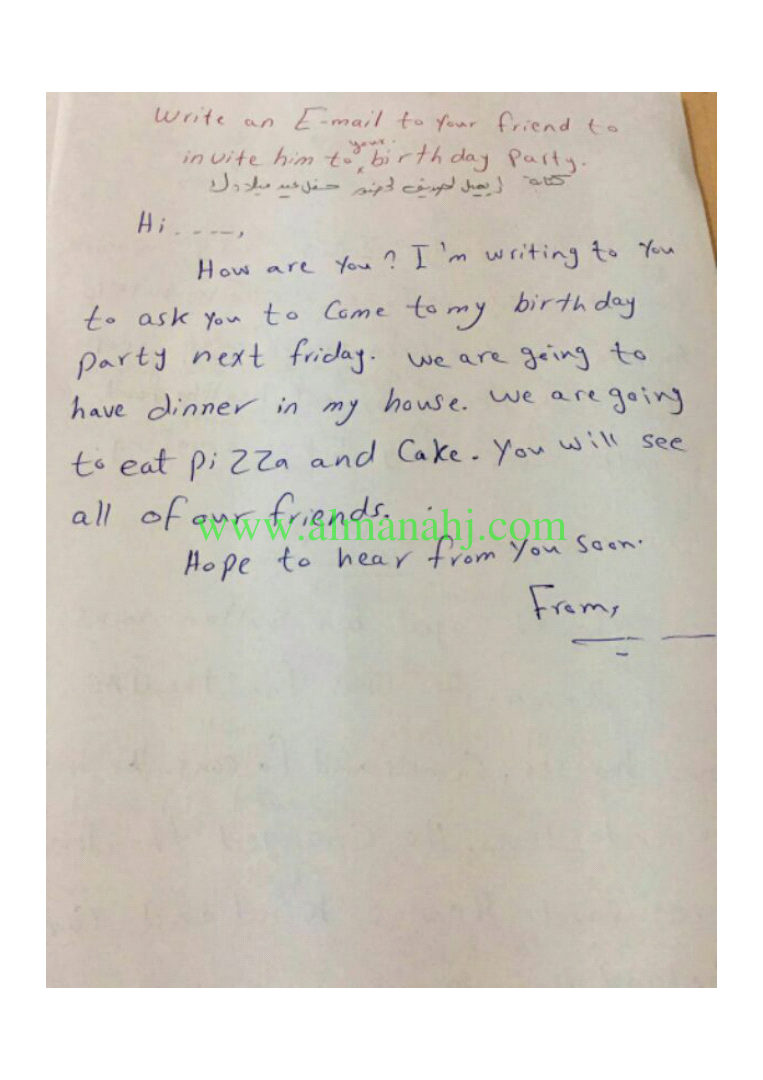 Write an E-mail to your friend to
invite him to your birthday party.
كتابة ايميل لصديق حفل عيد ميلادك
Hi ----,
How are you? I'm writing to you
to ask you to come to my birthday
party next friday. we are going to
have dinner in my house. we are going
to eat pizza and cake. you will see
all of our friends.
www.almanahj.com
Hope to hear from you soon.
From,